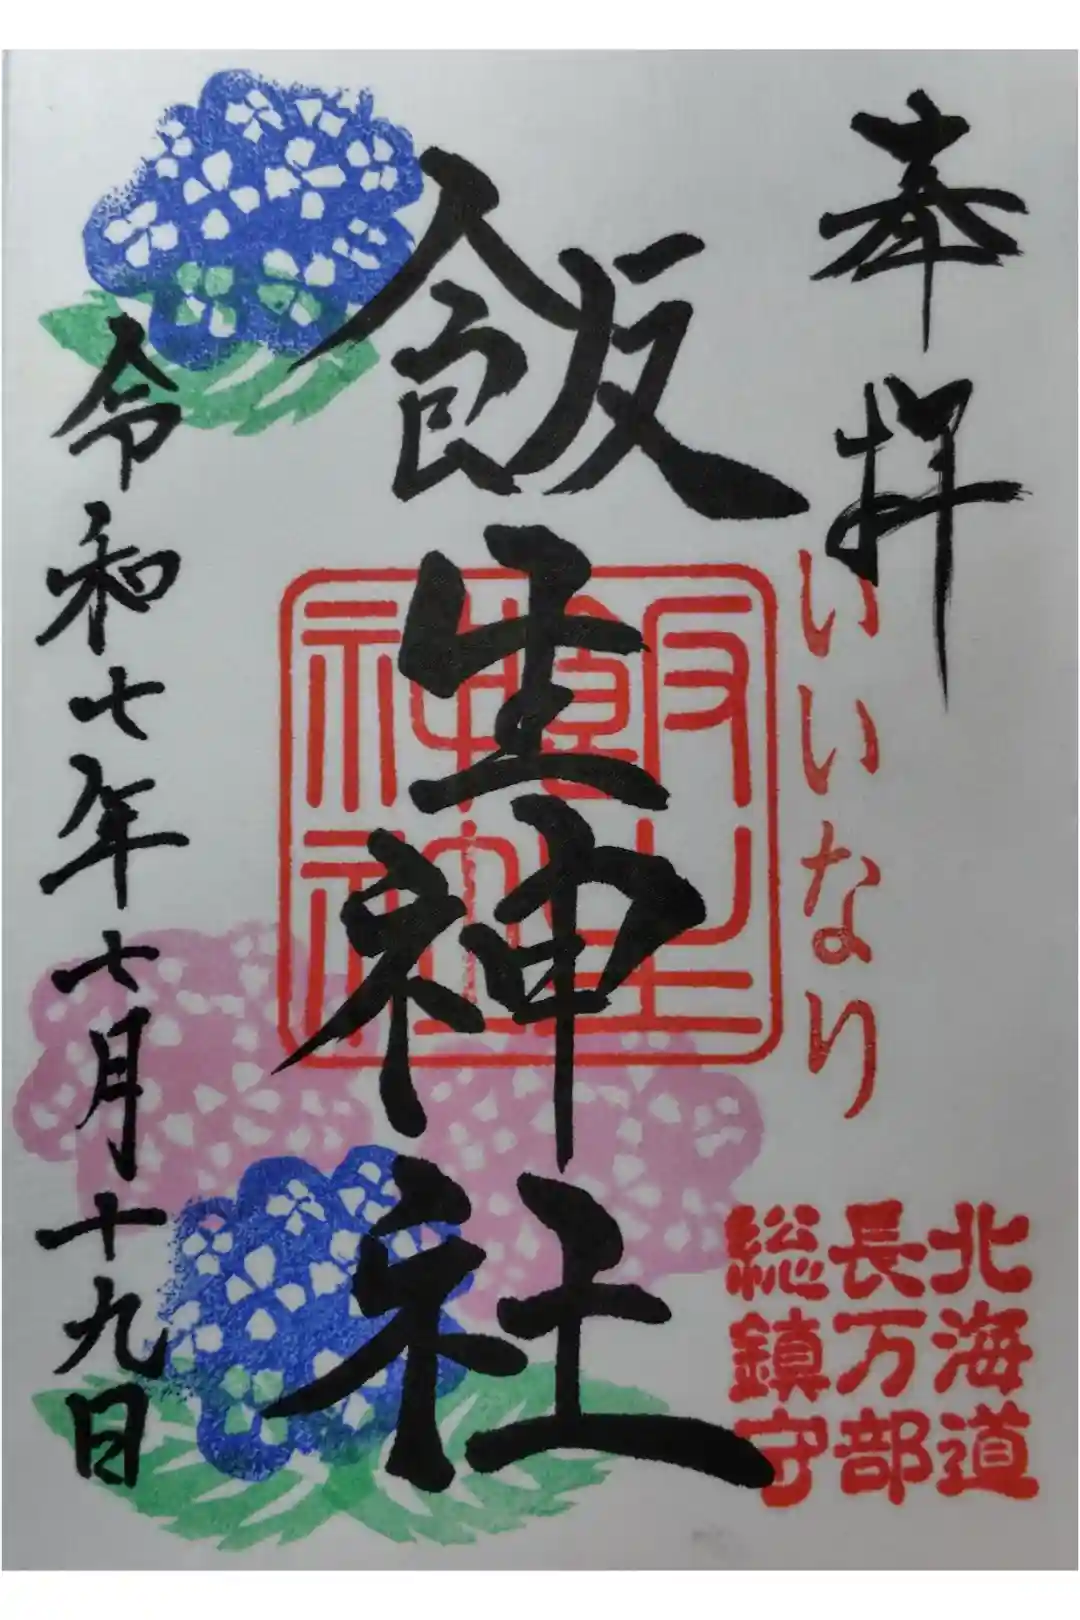 奉拝
いいなり
北海道
長万部
総鎮守
飯生神社
飯生神社
令和七年七月十九日